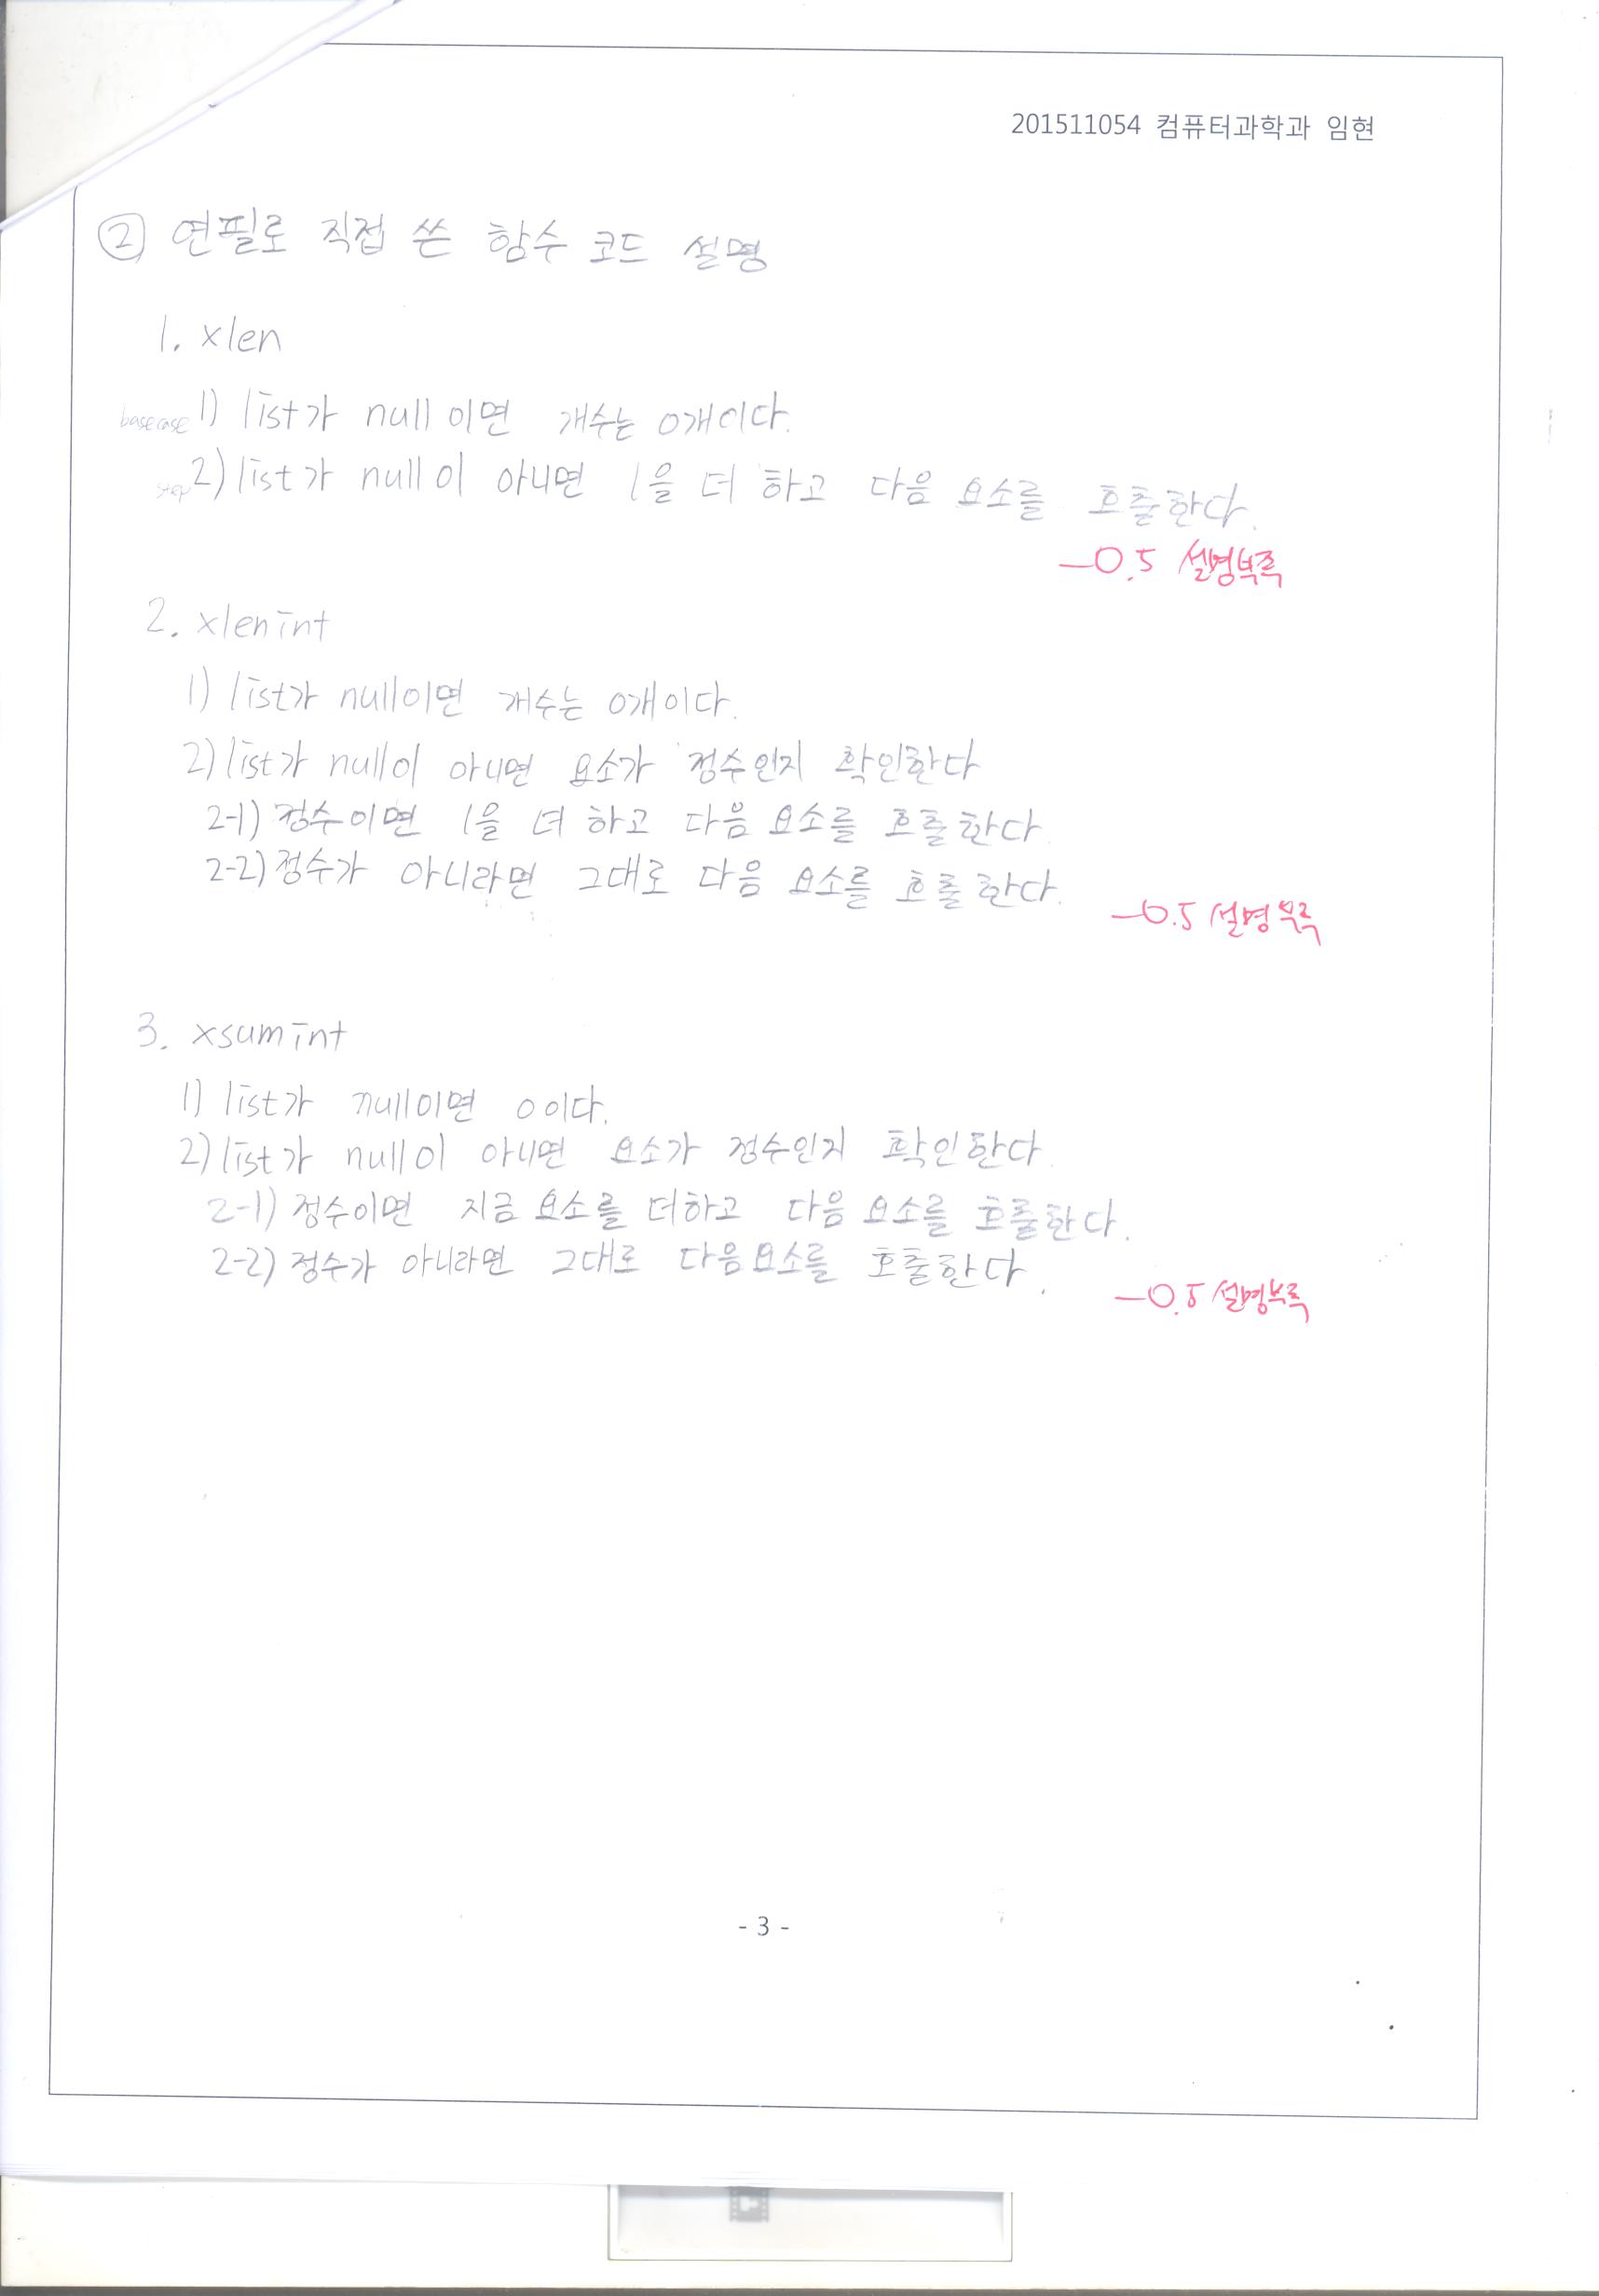 201511054 컴퓨터과학과 임현
② 연필로 직접 쓴 함수 코드 설명
1. xlen
basecase 1) list가 null이면 개수는 0개이다.
step 2) list가 null이 아니면 1을 더 하고 다음 요소를 호출한다.
-0.5 설명부족
2. xlenint
1) list가 null이면 개수는 0개이다.
2) list가 null이 아니면 요소가 정수인지 확인한다
2-1) 정수이면 1을 더 하고 다음 요소를 호출한다
2-2) 정수가 아니라면 그대로 다음 요소를 호출한다.
-0.5 설명부족
3. xsumint
1) list가 null이면 0이다.
2) list가 null이 아니면 요소가 정수인지 확인한다
2-1) 정수이면 지금 요소를 더하고 다음 요소를 호출한다.
2-2) 정수가 아니라면 그대로 다음요소를 호출한다.
-0.5 설명부족
- 3 -